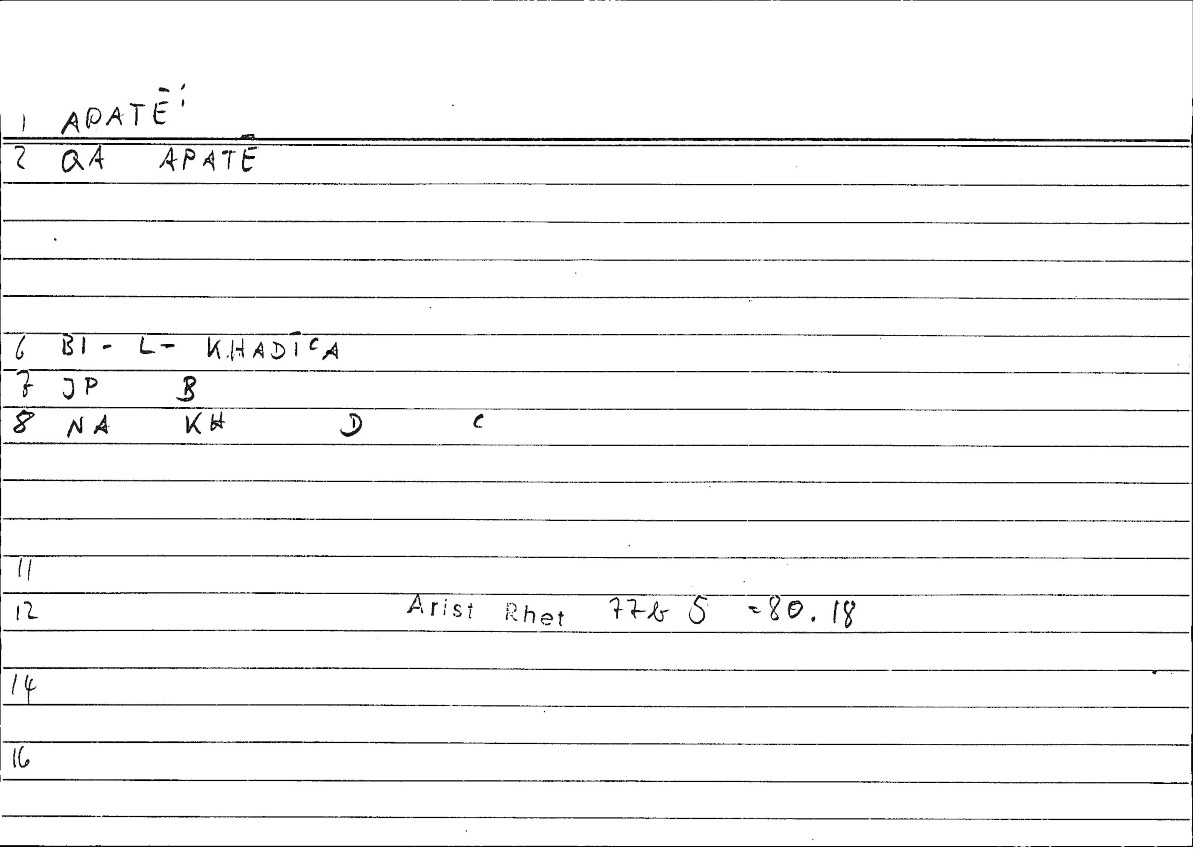 1 APATḖ
2 QA APATĒ
6 BI - L - KHADĪCA
7 JP B
8 NA KH D C
11
12 Arist Rhet 77b 5 =80.18
14
16